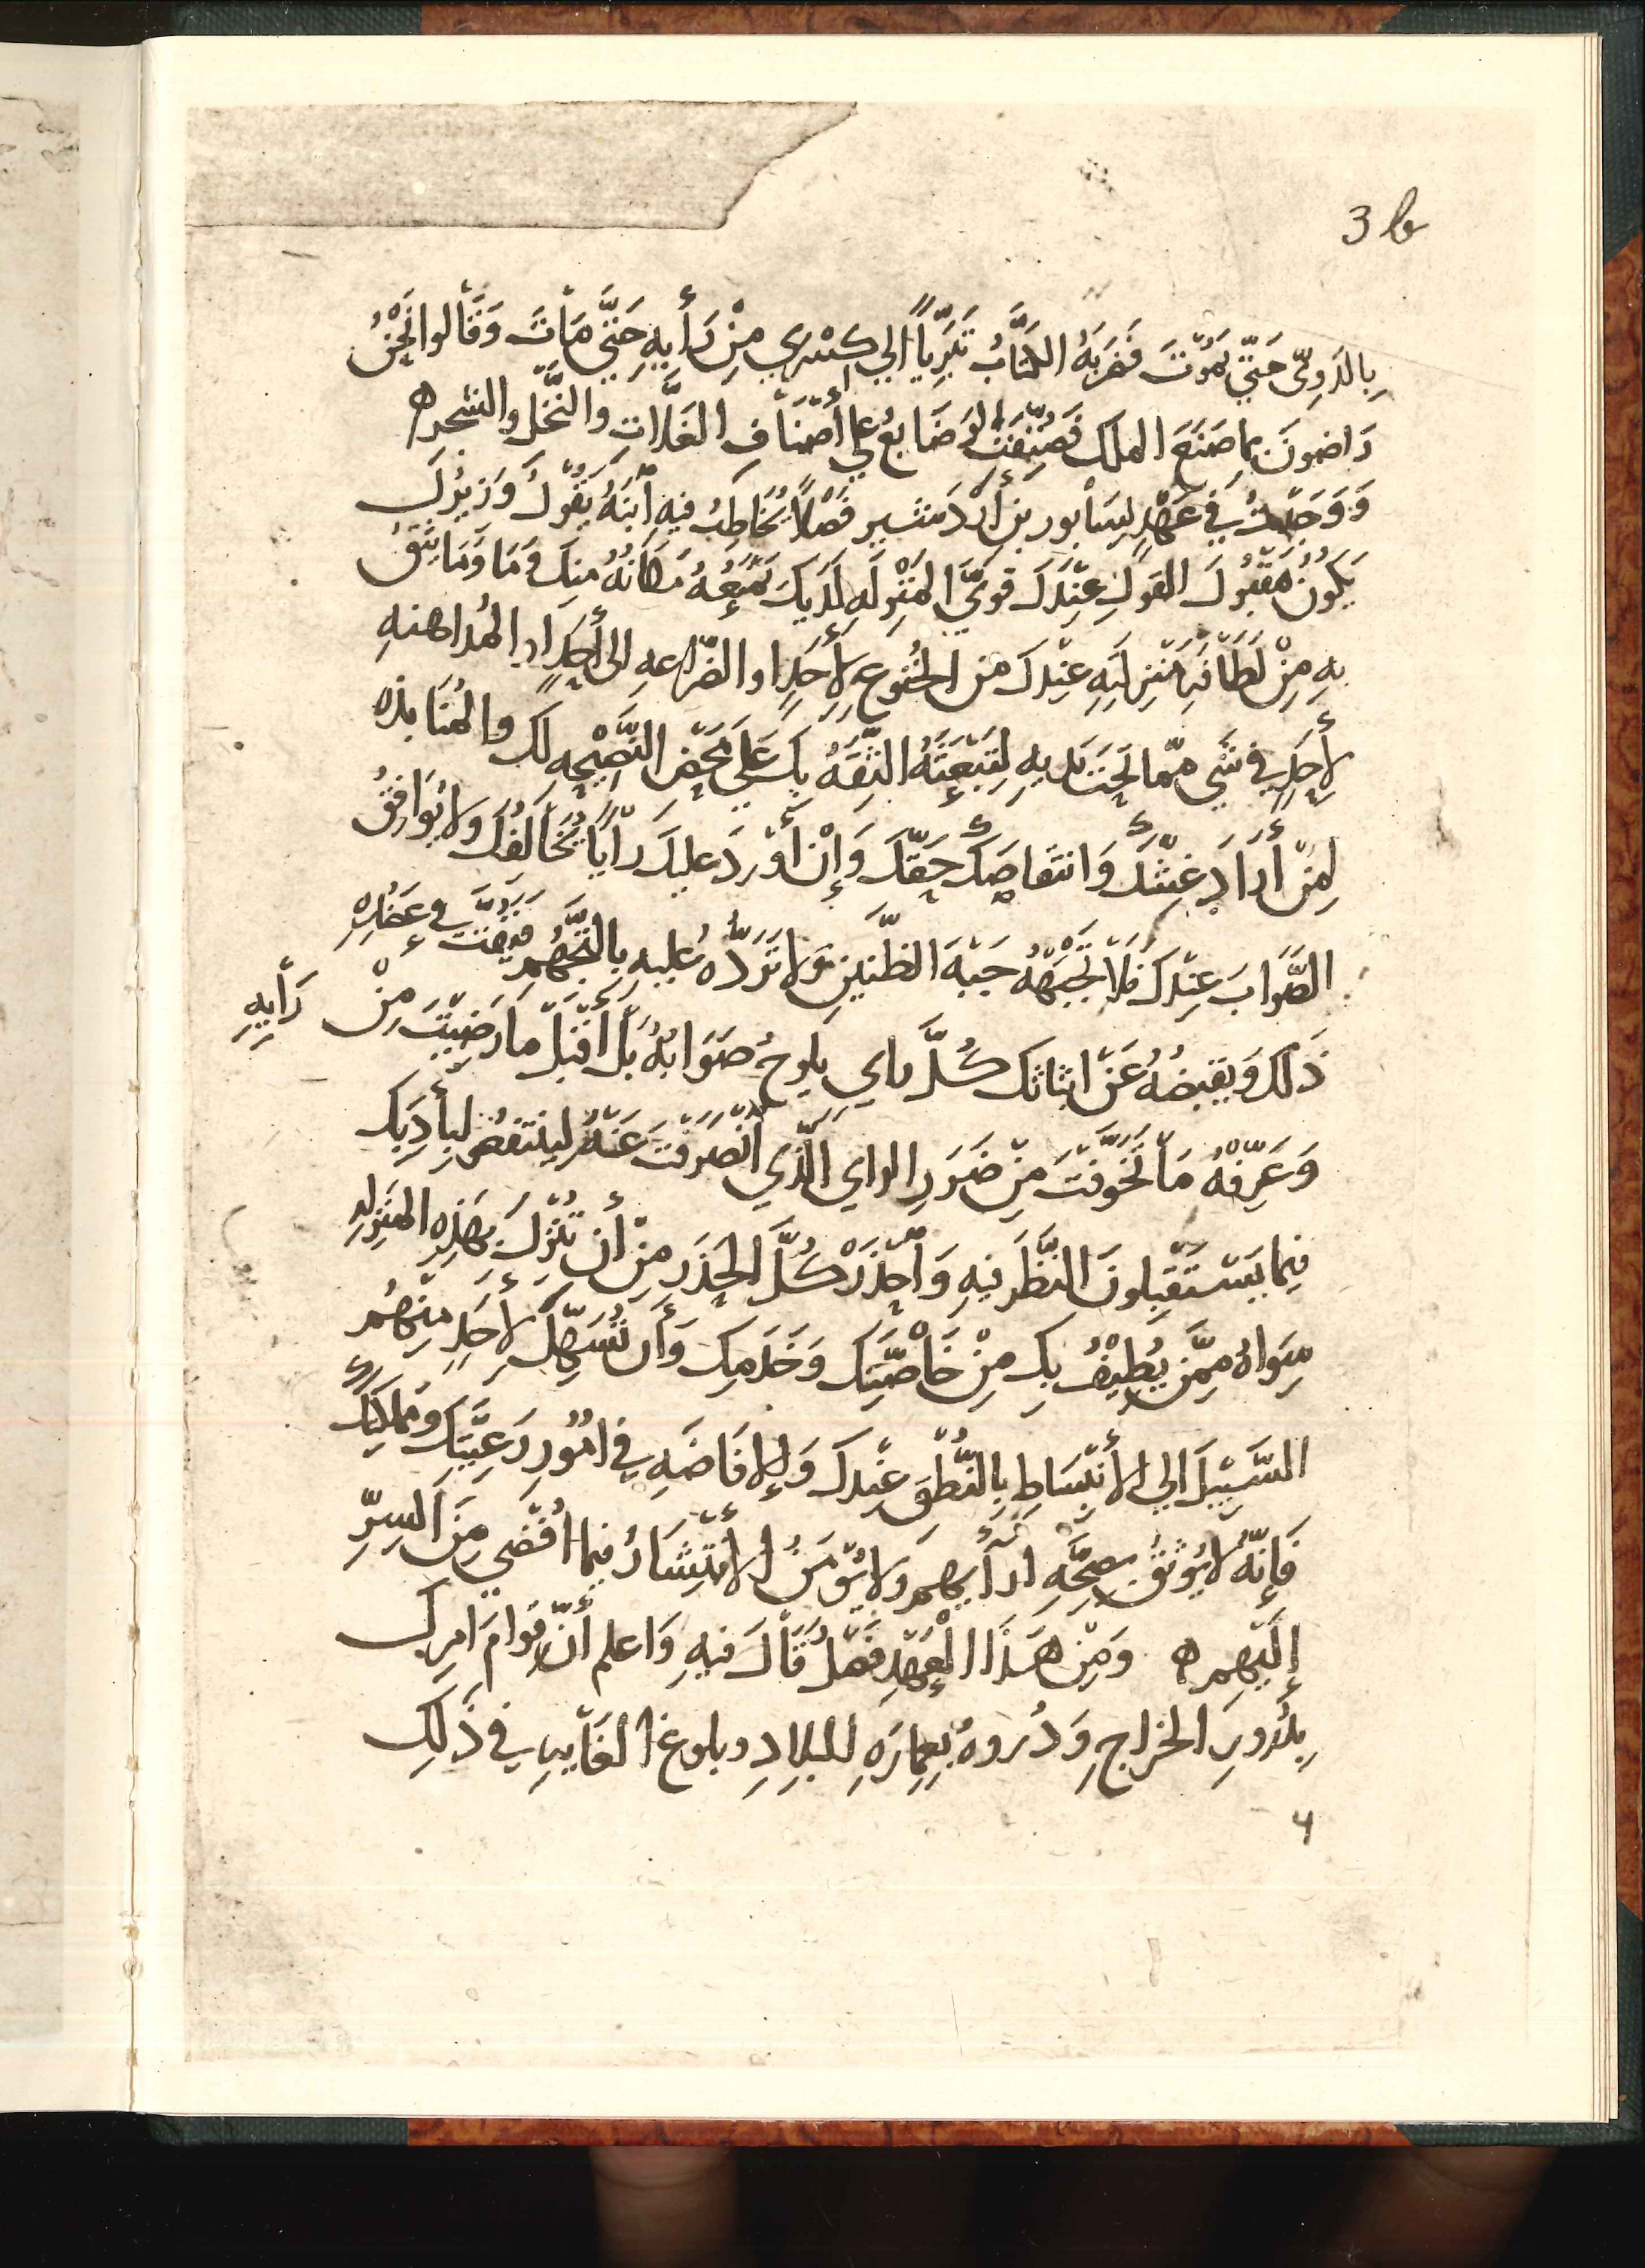 3 b
بِالدَوِىّ حَتّي يَمُوْتَ فَضَرَبَهُ الكتَّابُ تَبَرِّيَاً إلي كِسْرَي مِنْ رَأيِهِ حَتَّي مَاْتَ وَقَاْلوا نَحْنُ
رَاضونَ بما صَنَعَ الملك فَصُنِّفَتْ الوَضَايعُ عَلي أصْنَافِ الغَلَّاتِ والنَّخْل والشجر ه
وَوَجَدْتُ فِي عَهْدٍ لِسَاْبور بن أرْدَشير فَصْلاً يُخَاطِبُ فيهِ أبْنَهُ يَقُوْلُ وَزِيْرُكَ
يَكُوْنُ مَقْبُوْلَ القَوْلِ عِنْدَكَ قَوِيَّ المَنْزِلَهِ لَدَيكَ يَمْنَعُهُ مَكَانُهُ مِنكَ وَمَا وَمَا يَثِقُ
بِهِ مِنْ لَطَاْفَةِ مَنْزِلَتِهِ عِنْدَكَ من الخُنُوعِ لِأَحَدٍ او الضَّرَاعهِ الى أحَدٍ او المُداهنهِ
لأحَدٍ في شَيٍ ممّا تَحْتَ يدِيهِ لِتَبْعَثَهُ الثِّقَهُ بِكَ عَلَى مَحْضِ النَّصِيْحه لكَ والمُنَابذه
لِمَنْ أرَادَ غِشَّكَ وَانتقاصَكَ حَقّكَ وَإنْ أوْرَدَ عليكَ رَأْيَاً يُخَالفُكَ ولا يُوَافِقُ
الصَّوَابَ عِنْدَكَ فَلاْ تَجْبَهْهُ جَبْهَ الظَّنينِ وَلا تَرُدَّهُ عليهِ بِالتَجَهُّمِ فَيَفُتَّ فِي عَضُدِهِ
ذَلكَ وَيقبِضهُ عَنْ ابثاثكَ كُلَّ راي يلوحُ صَوَابُهُ بَلْ أقْبَلْ ما رَضِيْتَ مِنْ رَأيِهِ
وَعَرِّفْهُ مَا تَخَوَّفْتَ مِنْ ضَرَرِ الراي الَّذِي انْصَرَفْتَ عَنْهُ لينتفعَ بِأَدَبِكَ
فِيما يَسْتَقْبِلونَ النَّظَرَ فِيهِ وَاْحذَرْ كُلَّ الحَذَرِ مِنْ أن تُنْزِلَ بِهَذِهِ المَنْزِلهِ
سِوَاهُ مِمَّن يُطِيْفُ بِكَ مِنْ خَاْصَّتِكَ وَخَدَمِكَ وَأن تُسَهِّلَ لأحَدٍ مِنْهُم
السَّبِيْلَ الي الأنْبِسَاطِ بِالنُّطْقِ عِنْدَكَ وَالإفَاضَهِ فِي امُوْرِ رَعِيَّتِكَ ومملكَتِكَ
فَإنَّهُ لا يُوْثَقُ بصِحَّهِ ارَآيِهِم ولا يُؤْمَنُ الأنْتِشَارُ فيما أُفْضِي مِنَ السِرِّ
إِلَيْهِم ه وَمِنْ هَذَا العَهْدِ فَصْلٌ قَاْلَ فيهِ وَاعلم أنَّ قِوامَ امرِكَ
بِدُرُورِ الخراجِ وَدُرُوهُ بِعِمَارَهِ للبلادِ وبلوغ الغَاْيهِ في ذَلِكَ
4